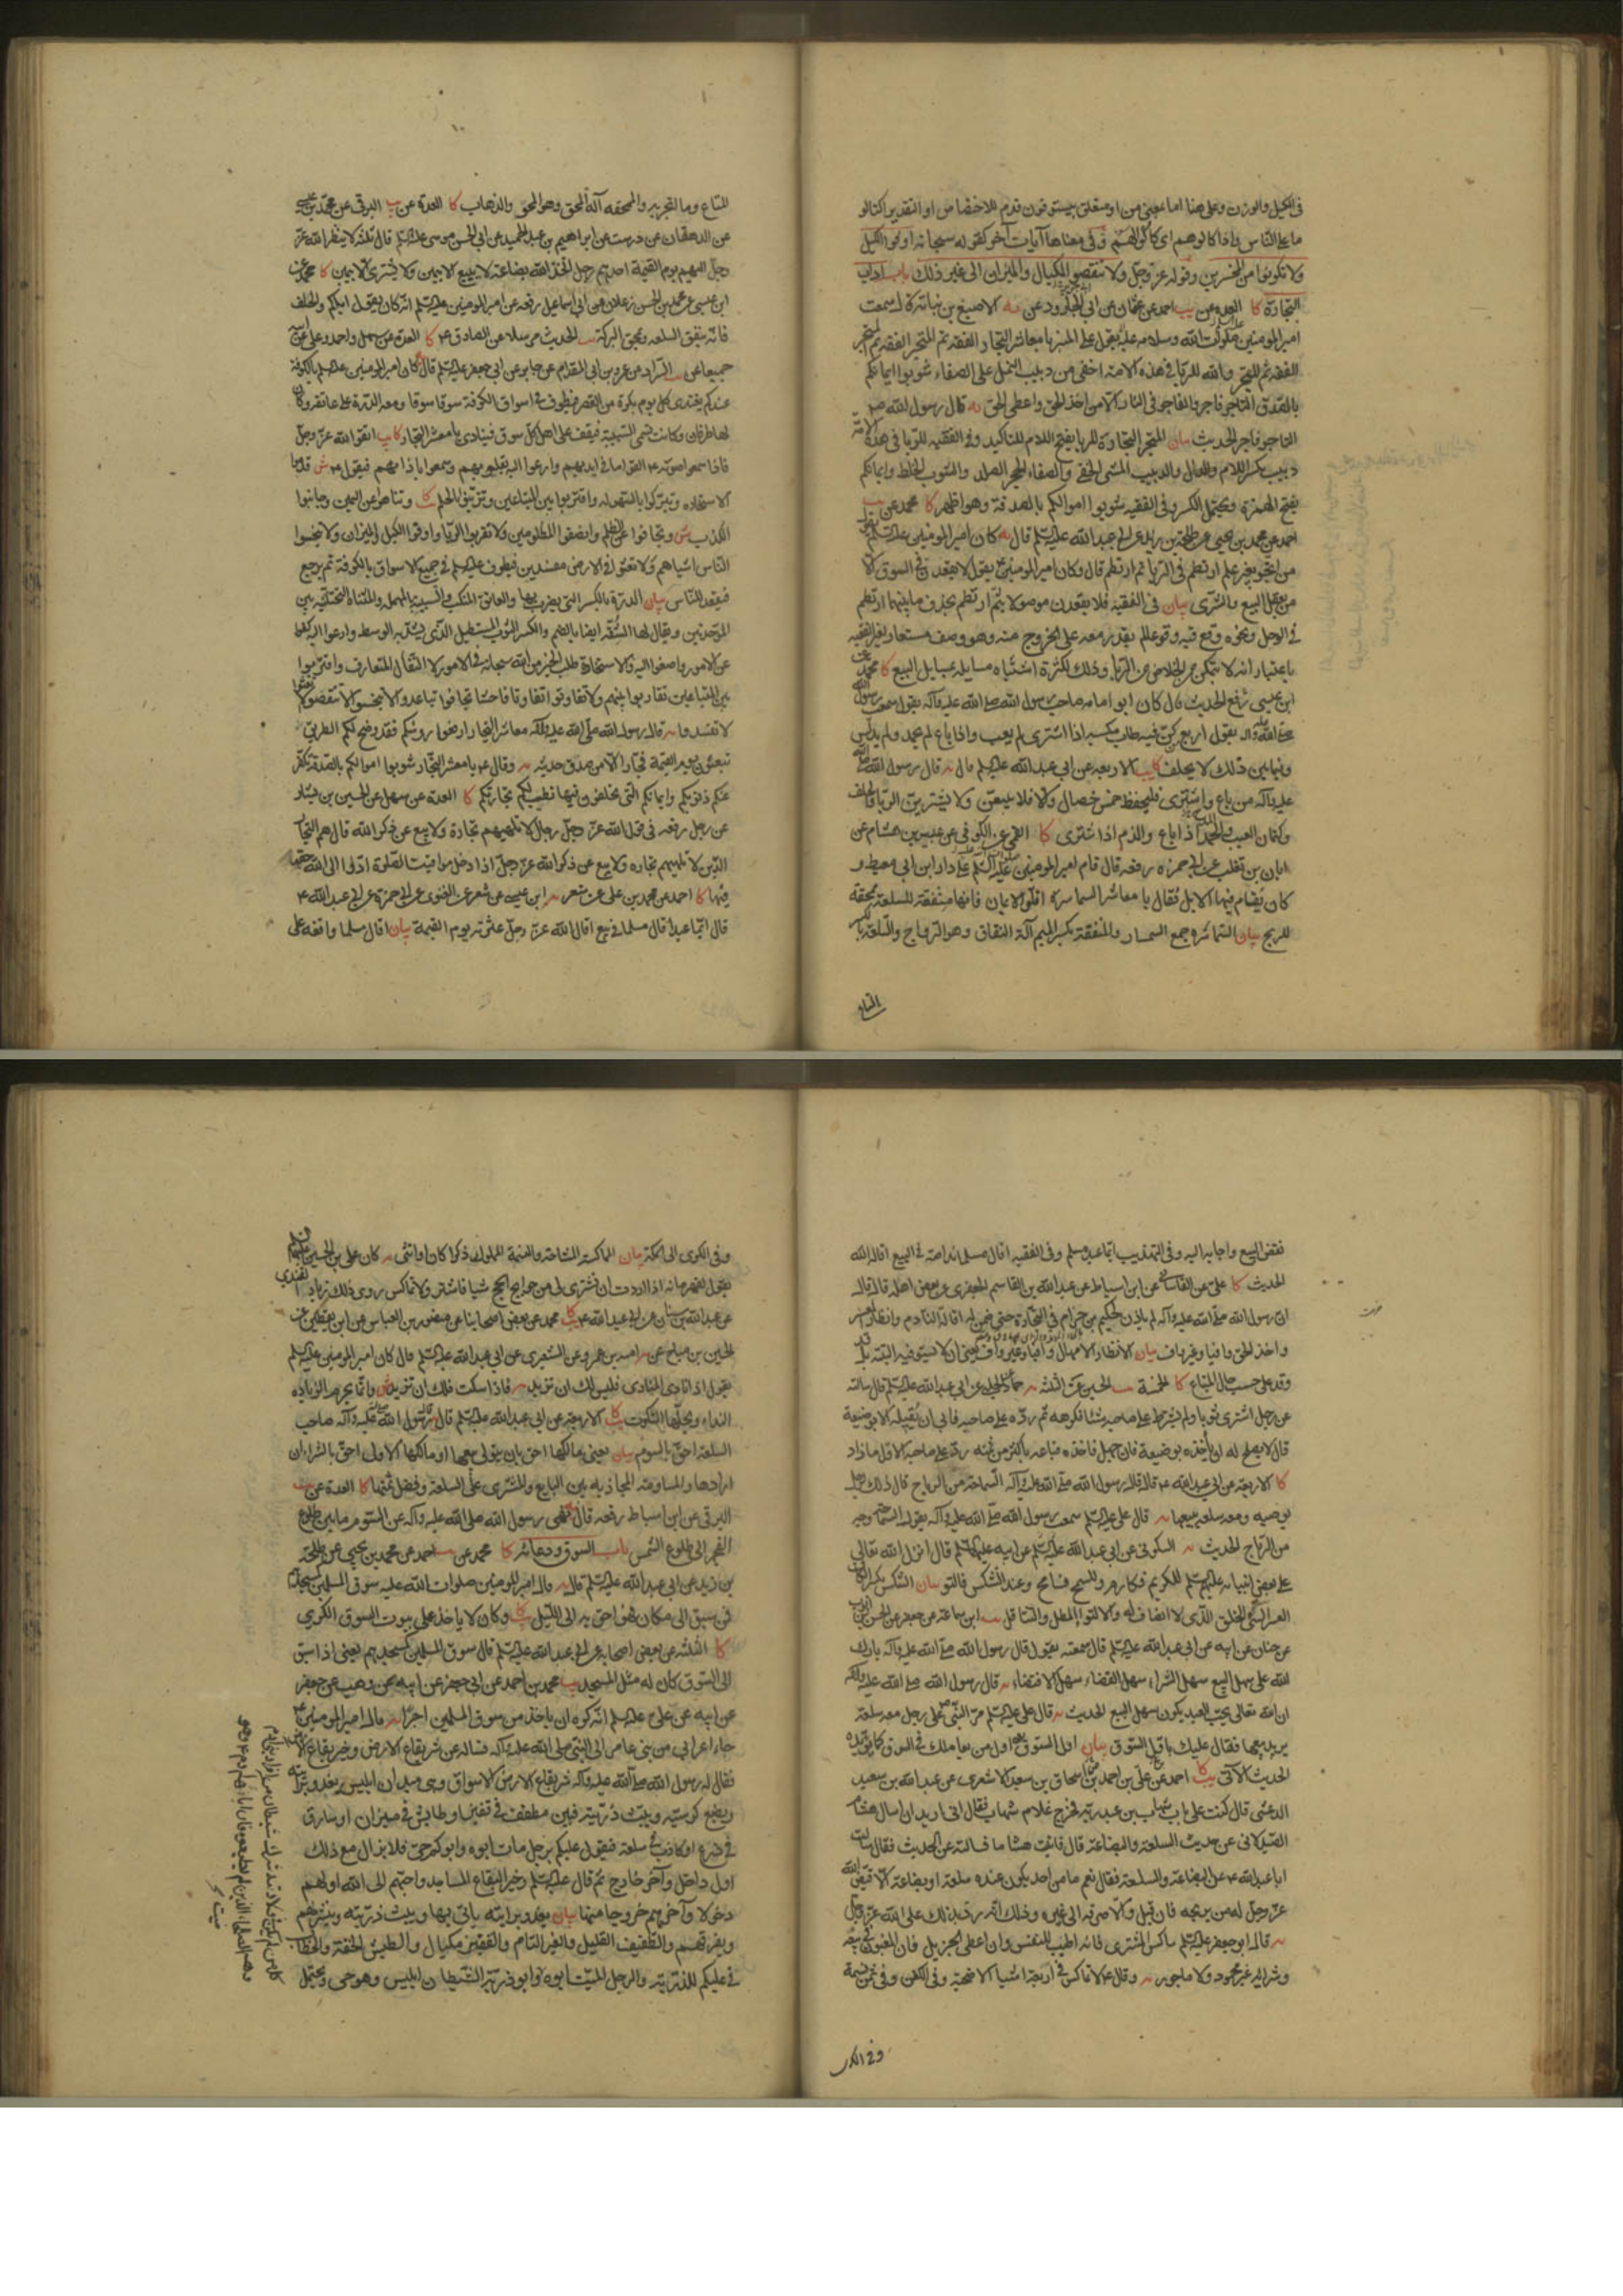 فى الكيل والوزن وعلى هنا اما بمعنى من او متعلق بيستوفون قدم للاختصاص او التقدير اكتالوا
ما على الناس واذا كالوهم اى كالوا لهم وفى معناها آيات اخر كقوله سبحانه اوفوا الكيل
ولا تكونوا من المخسرين وقوله عز وجل ولا تنقصوا المكيال والميزان الى غير ذلك باب اداب
التجارة كا العدة عن احمد عن عثمان عن ابى الجارود عن الاصبغ بن نباتة قال سمعت
امير المومنين صلوات الله وسلامه عليه يقول على المنبر يا معاشر التجار الفقه ثم المتجر الفقه ثم المتجر
الفقه ثم المتجر والله للربا فى هذه الامة اخفى من دبيب النمل على الصفاء شوبوا ايمانكم
بالصدق التاجر فاجر والفاجر فى النار الا من اخذ الحق واعطى الحق يه قال رسول الله ص
التاجر فاجر الحديث بيان المتجر التجارة للربا بفتح اللام للتاكيد وفى الفقيه للربا فى هذه الامة
دبيب بكسر اللام والدبيب المشى الخفى والصفاء الحجر الصلد والشوب الخلط وايمانكم
بفتح الهمزة ويحتمل الكسر وفى الفقيه شوبوا اموالكم بالصدقة وهو اظهر كا محمد عن
احمد عن محمد بن يحيى عن طلحة بن زيد عن ابى عبد الله عليه السلم قال كان امير المومنين عليه السلم يقول
من اتجر بغير علم ارتطم فى الربا ثم ارتطم قال وكان امير المومنين ع يقول لا يقعدن فى السوق الا
من يعقل البيع والشرى بيان فى الفقيه فلا يقعدن موصولا بثم ارتطم بحذف ما بينهما ارتطم
فى الوحل ونحوه وقع فيه وقوعا لم يقدر معه على الخروج منه وهو وصف مستعار لغير الفقيه
باعتبار انه لا يتمكن من الخلاص من الربا وذلك لكثرة اشتباه مسايله بمسايل البيع كا محمد عن
ابن عيسى رفع الحديث قال كان ابو امامه صاحب رسول الله صلى الله عليه وآله يقول سمعت رسول الله
صلى الله عليه وآله يقول اربع من كن فيه طاب مكسبه اذا اشترى لم يعب واذا باع لم يحمد ولم يدلس
وفيما بين ذلك لا يحلف كا يب الاربعه عن ابى عبد الله عليه السلم قال قال رسول الله صلى الله
عليه وآله من باع واشترى فليحفظ خمس خصال والا فلا يبيعن ولا يشترين الربا والحلف
وكتمان العيب والحمد اذا باع والذم اذا اشترى كا القمى عن الكوفى عن عبيس بن هشام عن
ابان بن تغلب عن ابى حمزه رفعه قال قام امير المومنين عليه السلم على دار ابن ابى معيط و
كان يقام فيها الابل فقال يا معاشر السماسرة اقلوا الايمان فانها منفقة للسلعة ممحقة
للربح بيان السماسرة جمع السمسار والمنفقة بكسر الميم آلة النفاق وهو الرواج والسلعة بالكسر
المتاع
للمتاع وما اتجر به والممحقه آلة المحق وهو المحو والذهاب كا العدة عن البرقى عن محمد بن على
عن الدهقان عن درست عن ابراهيم بن عبد الحميد عن ابى الحسن موسى عليه السلم قال ثلثة لا ينظر الله عز
وجل اليهم يوم القيمة احدهم رجل اتخذ الله بضاعة لا يبيع الا بيمين ولا يشترى الا بيمين كا محمد عن
ابن عيسى عن محمد بن الحسن زعلان عن ابى اسماعيل رفعه عن امير المومنين عليه السلم انه كان يقول اياكم والحلف
فانه ينفق السلعه ويمحق البركة الحديث مرسلا عن الصادق ع كا العدة عن سهل واحمد وعلى عن ابيه
جميعا عن السراد عن عمرو بن ابى المقدام عن جابر عن ابى جعفر عليه السلم قال كان امير المومنين عليه السلم بالكوفة
عندكم يغتدى كل يوم بكرة من القصر فيطوف فى اسواق الكوفة سوقا سوقا ومعه الدرة على عاتقه وكان
لها طرفان وكانت تسمى السبيبة فيقف على اهل كل سوق فينادى يا معشر التجار اتقوا الله عز وجل
فاذا سمعوا صوته ع القوا ما فى ايديهم وارعوا اليه بقلوبهم وسمعوا باذانهم فيقول ع قدموا
الاستخارة وتبركوا بالسهولة واقتربوا من المبتاعين وتزينوا بالحلم وتناهوا عن اليمين وجانبوا
الكذب وتجافوا عن الظلم وانصفوا المظلومين ولا تقربوا الربا واوفوا الكيل والميزان ولا تبخسوا
الناس اشياهم ولا تعثوا فى الارض مفسدين فيطوف عليه السلم فى جميع الاسواق بالكوفة ثم يرجع
فيقعد للناس بيان الدرة بالكسر التى يضرب بها والعاتق المنكب والسبيبة بالمهمله والمثناة التحتانيه بين
الموحدتين ويقال لها السب ايضا بالضم والكسر الثوب المستطيل الذى يشد به الوسط وارعوا اليه كفوا
عن الامور واصغوا اليه والاستخارة طلب الخير من الله سبحانه فى الامور لا التفال المتعارف واقتربوا
بين المبتاعين تقاربوا بينهم ولا تفاوتوا تفاوتا فاحشا تجافوا تباعدوا لا تبخسوا لا تنقصوا لا تعثوا
لا تفسدوا قال رسول الله صلى الله عليه وآله معاشر التجار ارفعوا روسكم فقد وضح لكم الطريق
تبعثون يوم القيمة فجارا الا من صدق حديثه وقال ع يا معشر التجار شوبوا اموالكم بالصدقة تكفر
عنكم ذنوبكم وايمانكم التى تحلفون فيها تطيب لكم تجارتكم كا العدة عن سهل عن الحسين بن بشار
عن رجل رفعه فى قول الله عز وجل رجال لا تلهيهم تجارة ولا بيع عن ذكر الله قال هم التجار
الذين لا تلهيهم تجاره ولا بيع عن ذكر الله عز وجل اذا دخل مواقيت الصلوة ادوا الى الله حقه
فيها كا احمد عن محمد بن على عن ابى حمزة عن ابى عبد الله ع
قال ايما عبد اقال مسلما فى بيع اقال الله عز وجل عثرته يوم القيمة بيان اقال مسلما وافقه على
نقض البيع واجابه اليه وفى التهذيب ايما عبد مسلم وفى الفقيه اقال مسلما ندامة فى البيع اقاله الله
الحديث كا على عن القاسانى عن ابن اسباط عن عبد الله بن القاسم الجعفرى عن بعض اهله قال قال
ان رسول الله صلى الله عليه وآله لم ياذن لحكيم بن حزام فى التجارة حتى ضمن له اقالة النادم وانظار المعسر
واخذ الحق وافيا وغير واف بيان الانظار الامهال وافيا وغير واف يعنى ان لا يستوفيه البتة بل قد
وقد على حسب حال المبتاع كا الخمسة يب الحسين عن الثلثه حماد عن الحلبى عن ابى عبد الله عليه السلم قال سالته
عن رجل اشترى ثوبا ولم يشترط على صاحبه شيئا فكرهه ثم رده على صاحبه فابى ان يقبله الا بوضيعة
قال لا يصلح له ان ياخذه بوضيعة فان جهل فاخذه فباعه باكثر من ثمنه رد على صاحبه الاول ما زاد
كا الاربعة عن ابى عبد الله ع قال قال رسول الله صلى الله عليه وآله السماحة من الرباح قال ذلك لرجل
يوصيه ومعه سلعه يبيعها قال على عليه السلم سمعت رسول الله صلى الله عليه وآله يقول السماح وجه
من الرباح الحديث السكونى عن ابى عبد الله عليه السلم عن ابيه عليه السلم قال انزل الله تعالى
على بعض انبيائه عليهم السلم للكريم فكارم وللسمح فسامح وعند الشكس فالتو بيان الشكس بكسر الكاف
العسر السيئ الخلق الذى لا انصاف له والالتواء المطل والتثاقل ابن سماعة عن جعفر عن الحسن بن ايوب
عن حنان عن ابيه عن ابى عبد الله عليه السلم قال سمعته يقول قال رسول الله صلى الله عليه وآله بارك
الله على سهل البيع سهل الشراء سهل القضاء سهل الاقتضاء قال رسول الله صلى الله عليه وآله
ان الله تعالى يحب العبد يكون سهل البيع الحديث قال على عليه السلم مر النبى ص على رجل معه سلعة
يريد بيعها فقال عليك باول السوق بيان اول السوق يعنى اول من يعاملك فى السوق كما يؤيده
الحديث الاتى يب كا احمد عن على بن احمد عن اسحاق بن سعد الاشعرى عن عبد الله بن سعيد
الدغشى قال كنت على باب شهاب بن عبد ربه فخرج غلام شهاب فقال انى اريد ان اسال هشام
الصيدلانى عن حديث السلعة والبضاعة قال فاتيت هشاما فسالته عن الحديث فقال سالت
ابا عبد الله ع عن البضاعة والسلعة فقال نعم ما من احد يكون عنده سلعة او بضاعة الا قيض الله
عز وجل له من يربحه فان قبل والا صرفه الى غيره وذلك انه رد بذلك على الله عز وجل
قال ابو جعفر عليه السلم ماكس المشترى فانه اطيب للنفس وان اعطى الجزيل فان المغبون فى بيعه
وشرائه غير محمود ولا ماجور وقال ع لا تماكس فى اربعة اشياء الاضحية وفى الكفن وفى ثمن نسمة
وفى الكرى
وفى الكرى الى مكة بيان المماكسة المشاحة والنسمة المملوك ذكرا كان او انثى كان على بن الحسين عليهما السلم
يقول لقهرمانه اذا اردت ان تشترى لى من حوايج الحج شيا فاشتر ولا تماكس روى ذلك زياد القندى
عن عبد الله بن سنان عن ابى عبد الله ع محمد عن بعض اصحابنا عن منصور بن العباس عن ابن يقطين عن
الحسين بن مياح عن امية بن عمرو عن الشعيرى عن ابى عبد الله عليه السلم قال كان امير المومنين عليه السلم
يقول اذا نادى المنادى فليس لك ان تزيد فاذا سكت فلك ان تزيد وانما يحرم الزياده
النداء ويحلها السكوت كا الاربعة عن ابى عبد الله عليه السلم قال قال رسول الله صلى الله عليه وآله صاحب
السلعة احق بالسوم بيان يعنى مالكها احق بان يتولى بيعها او مالكها الاول احق بالشراء ان
ارادها والمساومة المجاذبه بين البايع والمشترى على السلعة وفضل ثمنها كا العدة عن
البرقى عن ابن اسباط رفعه قال نهى رسول الله صلى الله عليه وآله عن السوم ما بين طلوع
الفجر الى طلوع الشمس باب السوق ودعائه كا محمد عن احمد عن محمد بن يحيى عن طلحة
بن زيد عن ابى عبد الله عليه السلم قال قال امير المومنين صلوات الله عليه سوق المسلمين كمسجدهم
فمن سبق الى مكان فهو احق به الى الليل كا وكان لا ياخذ على بيوت السوق الكرى
كا الثلثه عن بعض اصحابه عن ابى عبد الله عليه السلم قال سوق المسلمين كمسجدهم يعنى اذا سبق
الى السوق كان له مثل المسجد يب محمد بن احمد عن ابى جعفر عن ابيه عن وهب عن جعفر
عن ابيه عن على عليه السلم انه كره ان ياخذ من سوق المسلمين اجرا قال امير المومنين ع
جاء اعرابى من بنى عامر الى النبى صلى الله عليه وآله فساله عن شر بقاع الارض وخير بقاع الارض
فقال له رسول الله صلى الله عليه وآله شر بقاع الارض الاسواق وهى ميدان ابليس يغدو برايته
ويضع كرسيه ويبث ذريته فبين مطفف فى قفيز او طايش فى ميزان او سارق
فى ذرع او كاذب فى سلعة فيقول عليكم برجل مات ابوه وابوكم حى فلا يزال مع ذلك
اول داخل وآخر خارج ثم قال عليه السلم وخير البقاع المساجد واحبهم الى الله اولهم
دخولا وآخرهم خروجا منها بيان يغدو برايته ياتى بها ويبث ذريته وينشرهم
ويفرقهم والتطفيف القليل والغير التام والقفيز مكيال والطيش الخفة والخطاب
فى عليكم للذرية والرجل الميت ابوه وابو ذرية الشيطان ابليس وهو حى ويحتمل